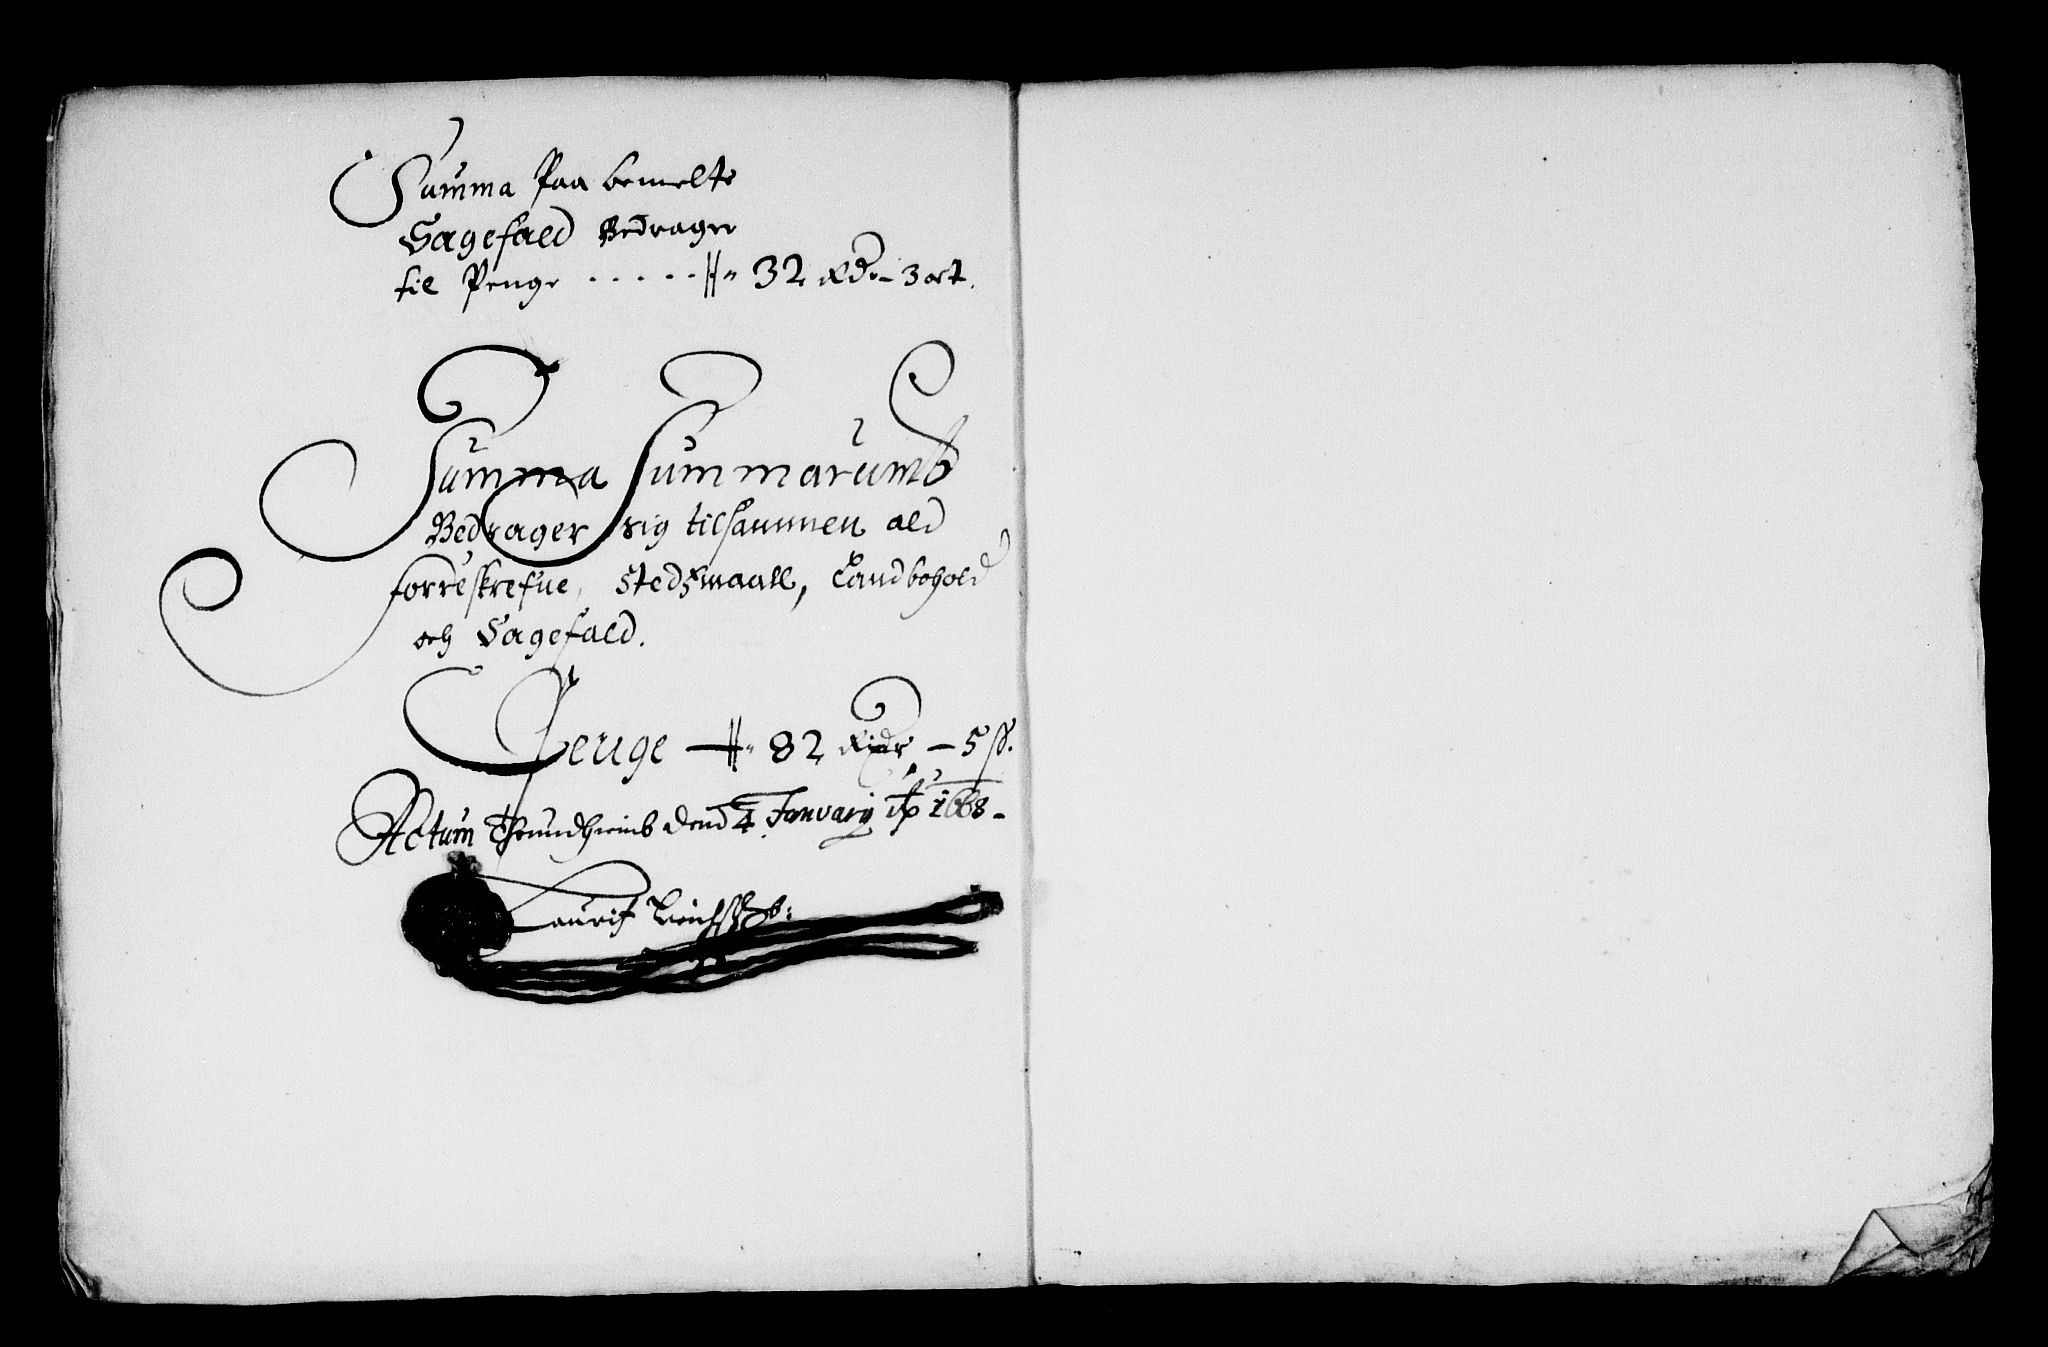 Summa Paa bemelte
Sagefald Bedrager
til Penge ..... 32 Rdr - 3 ort.
Summa Summarumb
Bedrager sig tilsammen ald
forreskrefne, Stedsmaall, Landbohold
och Sagefald.
Penge - 82 Rixdr - 5 ß.
Actum Trundhiemb dend 4 January Ao 1668 -
Laurits